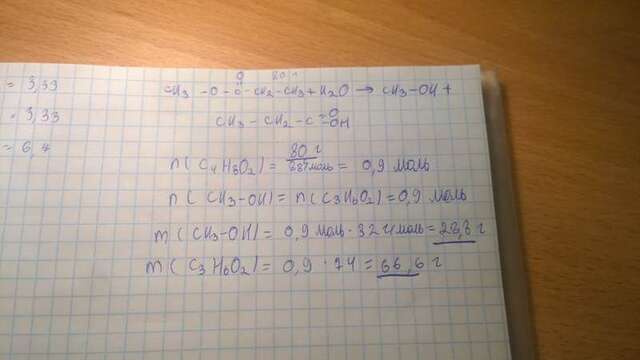 = 3,33
= 3,33
= 6,7
O 80 г
CH3 - O - C - CH2 - CH3 + H2O → CH3-OH +
CH3 - CH2 - C =O -OH
n( C4H8O2) = 80 г / моль = 0,9 моль
n( CH3-OH) = n(C3H6O2) = 0,9 моль
m( CH3-OH) = 0,9 моль · 32 г/моль = 28,8 г
m( C3H6O2) = 0,9 · 74 = 66,6 г